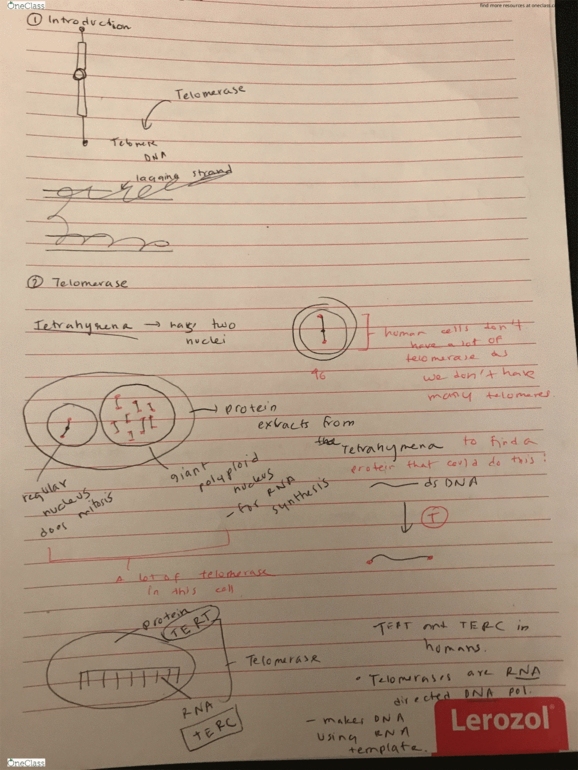 OneClass
find more resources at oneclass.c
① Introduction
Telomerase
DNA
lagging strand
② Telomerase
Tetrahymena → has two
nuclei
46
human cells don't
have a lot of
telomerase as
we don't have
many telomeres.
→ protein
extracts from
the Tetrahymena to find a
protein that could do this!
regular
nucleus
does mitosis
giant
polyploid
nucleus
- for RNA
synthesis
ds DNA
T
a lot of telomerase
in this cell
protein
TERT
Telomerase
RNA
TERC
TERT and TERC in
humans.
• Telomerases are RNA
directed DNA pol.
- makes DNA
using RNA
template.
Lerozol
OneClass